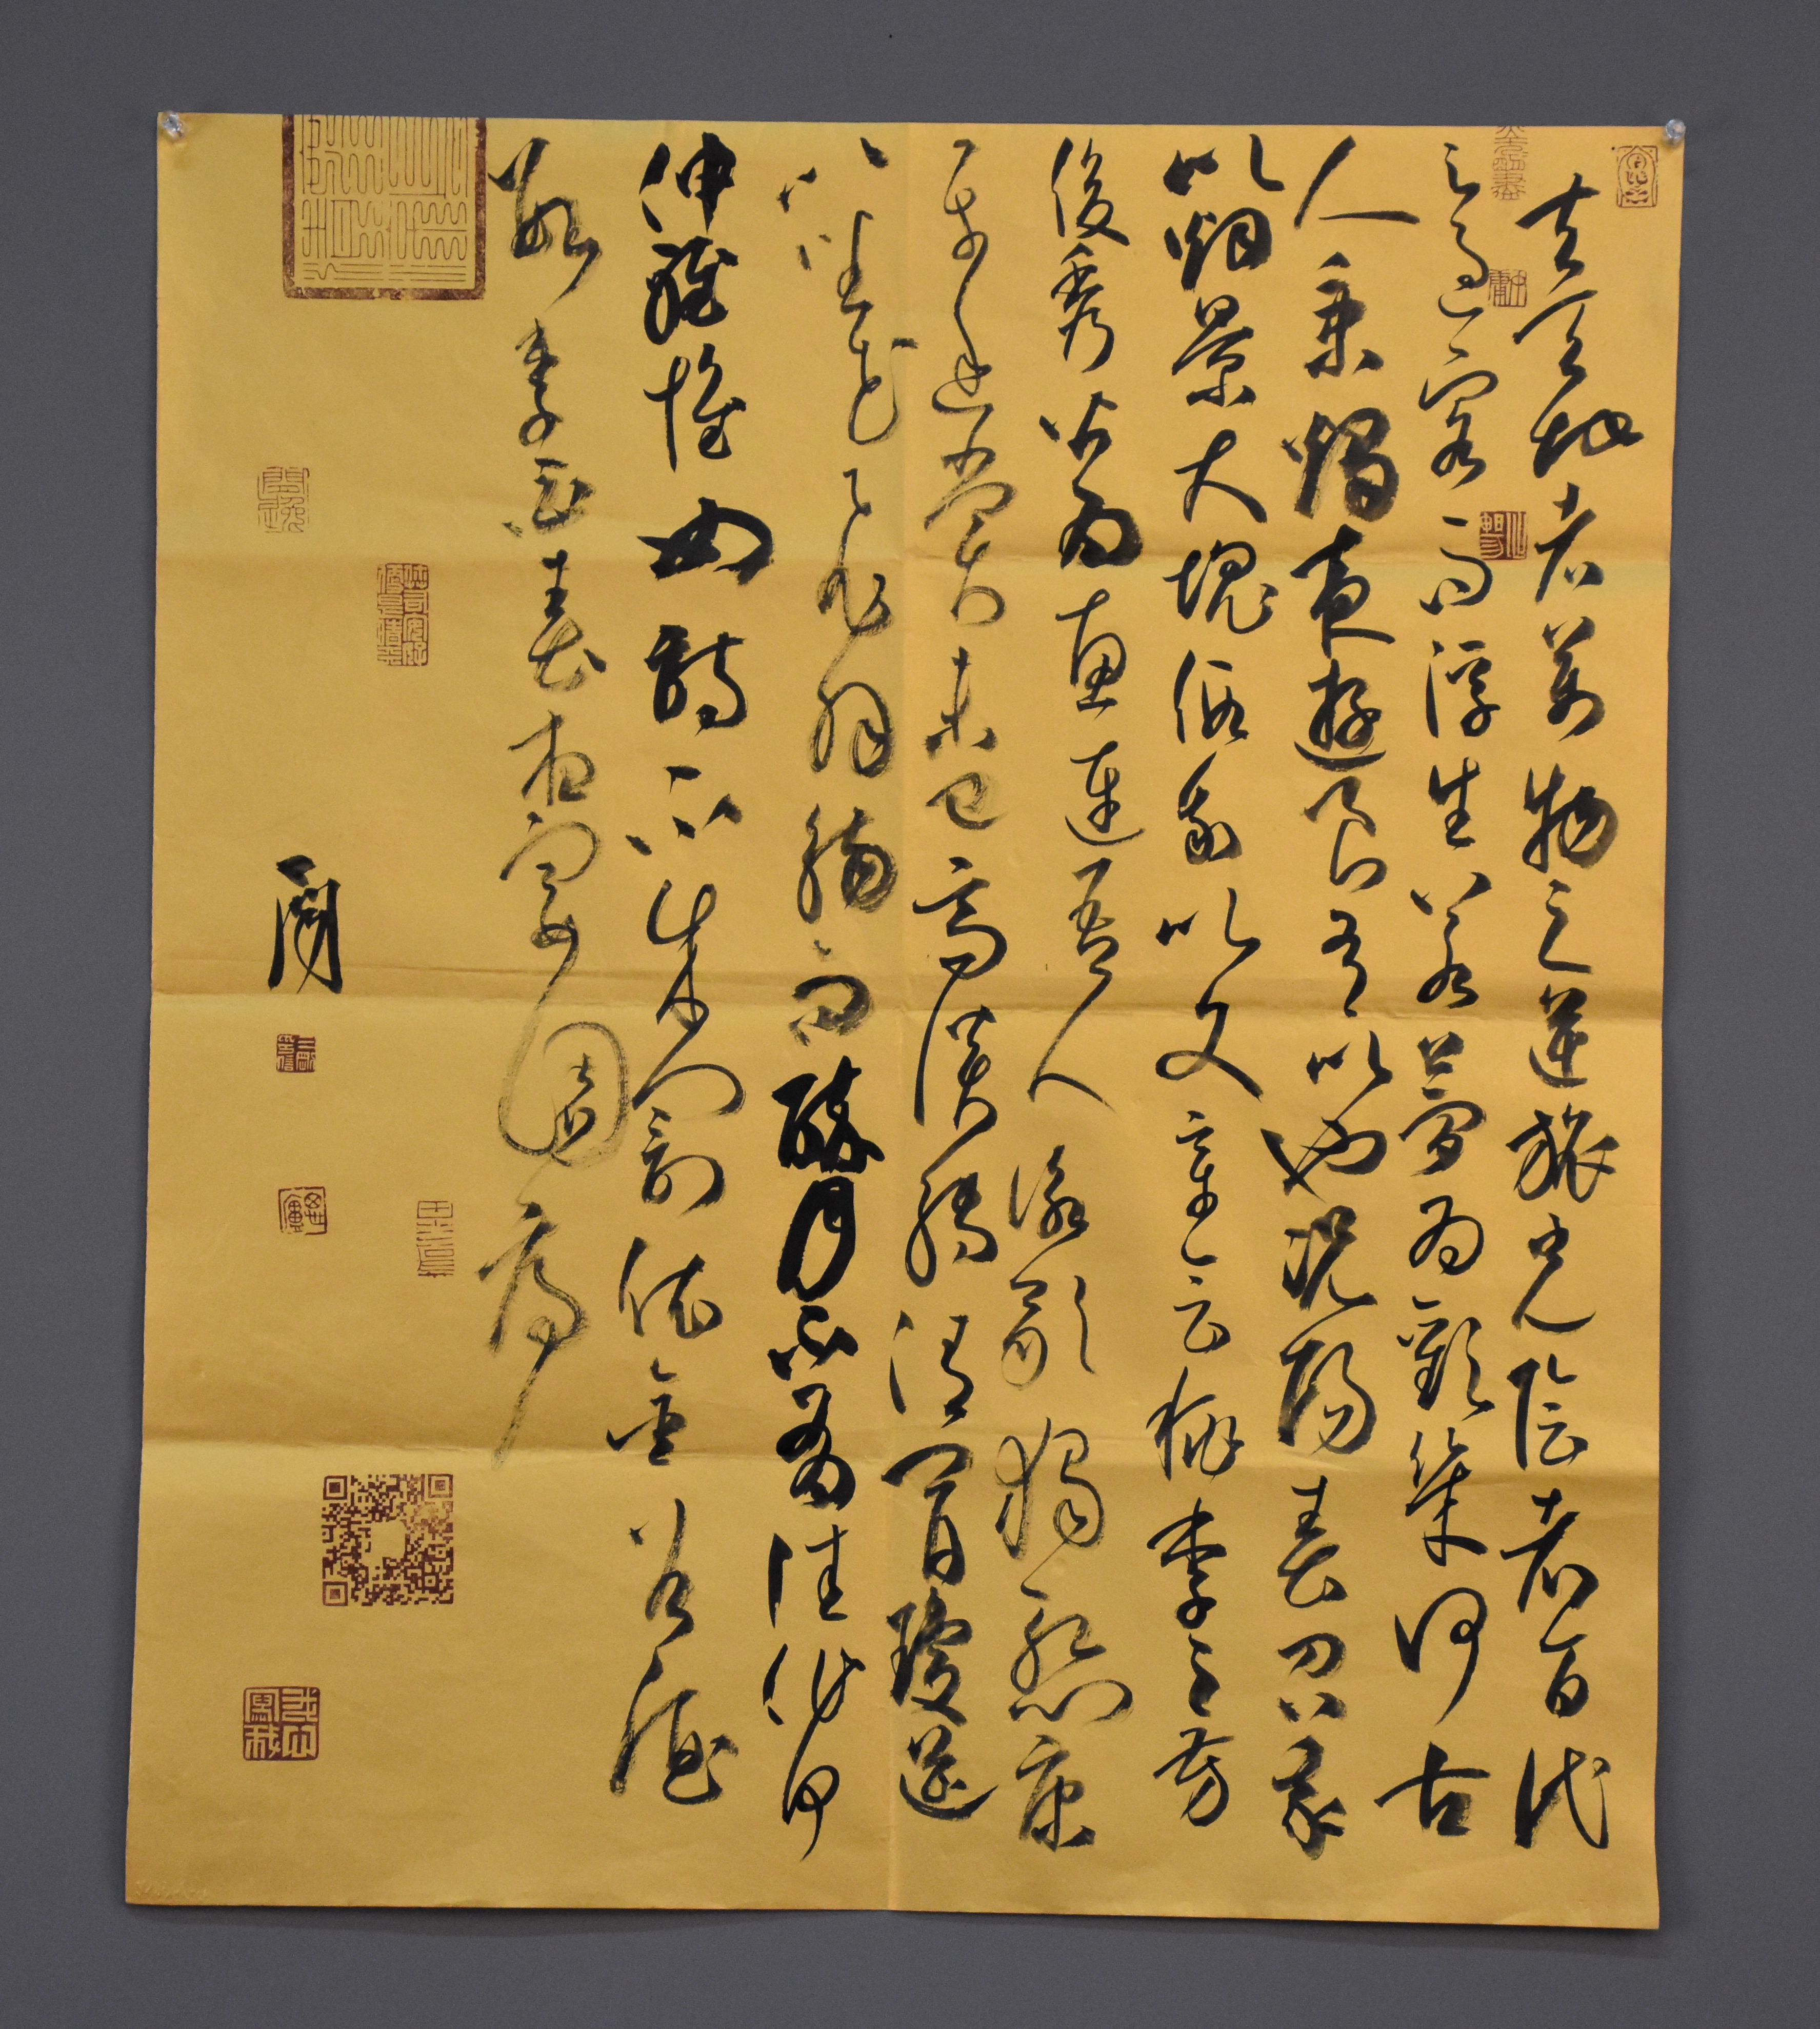 夫天地者萬物之逆旅光陰者百代
之過客而浮生若夢為歡幾何古
人秉燭夜遊良有以也況陽春召我
以烟景大塊假我以文章會桃李之芳
後秀皆為惠連吾人詠歌獨慙康
樂幽賞未已高談轉清開瓊筵
以坐花飛羽觴而醉月不有佳作何
伸雅懷如詩不成罰依金谷酒
數李白春夜宴園序